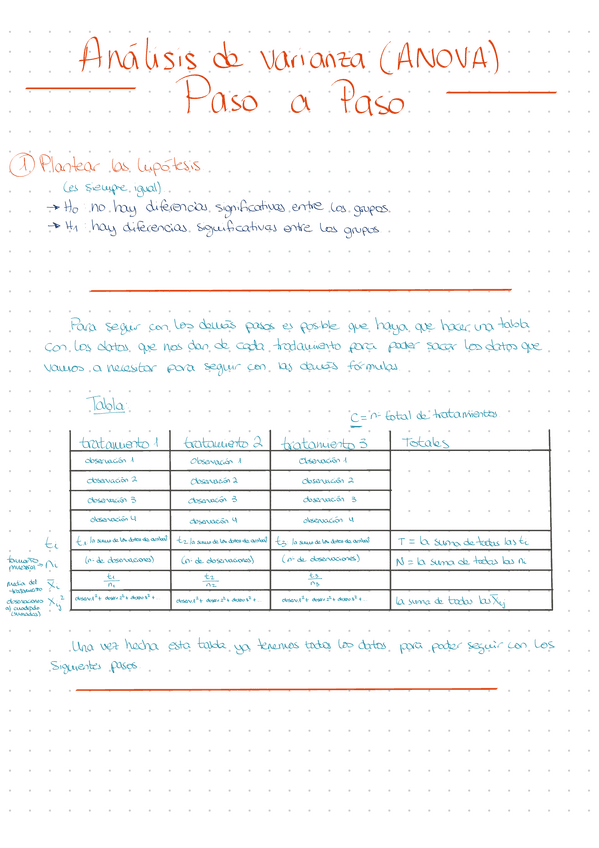 Análisis de varianza (ANOVA)
Paso a Paso
① Plantear las hipótesis
(es siempre igual)
→ H₀ no hay diferencias significativas entre los grupos.
→ H₁ hay diferencias significativas entre los grupos
Para seguir con los demás pasos es posible que haya que hacer una tabla
con los datos que nos dan de cada tratamiento para poder sacar los datos que
vamos a necesitar para seguir con las demás fórmulas
Tabla:
C = nº total de tratamientos
tratamiento 1 tratamiento 2 tratamiento 3 Totales
Observación 1 Observación 1 Observación 1
observación 2 observación 2 observación 2
observación 3 observación 3 observación 3
observación 4 observación 4 observación 4
tᵢ t₁ (a suma de los datos de arriba) t₂ (a suma de los datos de arriba) t₃ (a suma de los datos de arriba) T = la suma de todas las tᵢ
tamaño muestral → nᵢ (nº de observaciones) (nº de observaciones) (nº de observaciones) N = la suma de todas las nᵢ
media del tratamiento x̄ᵢ t₁/n₁ t₂/n₂ t₃/n₃
observaciones al cuadrado (sumadas) Xᵢⱼ² observ1² + observ2² + observ3² + observ1² + observ2² + observ3² + observ1² + observ2² + observ3² + la suma de todas las Xᵢⱼ
Una vez hecha esta tabla, ya tenemos todos los datos para poder seguir con los
siguientes pasos